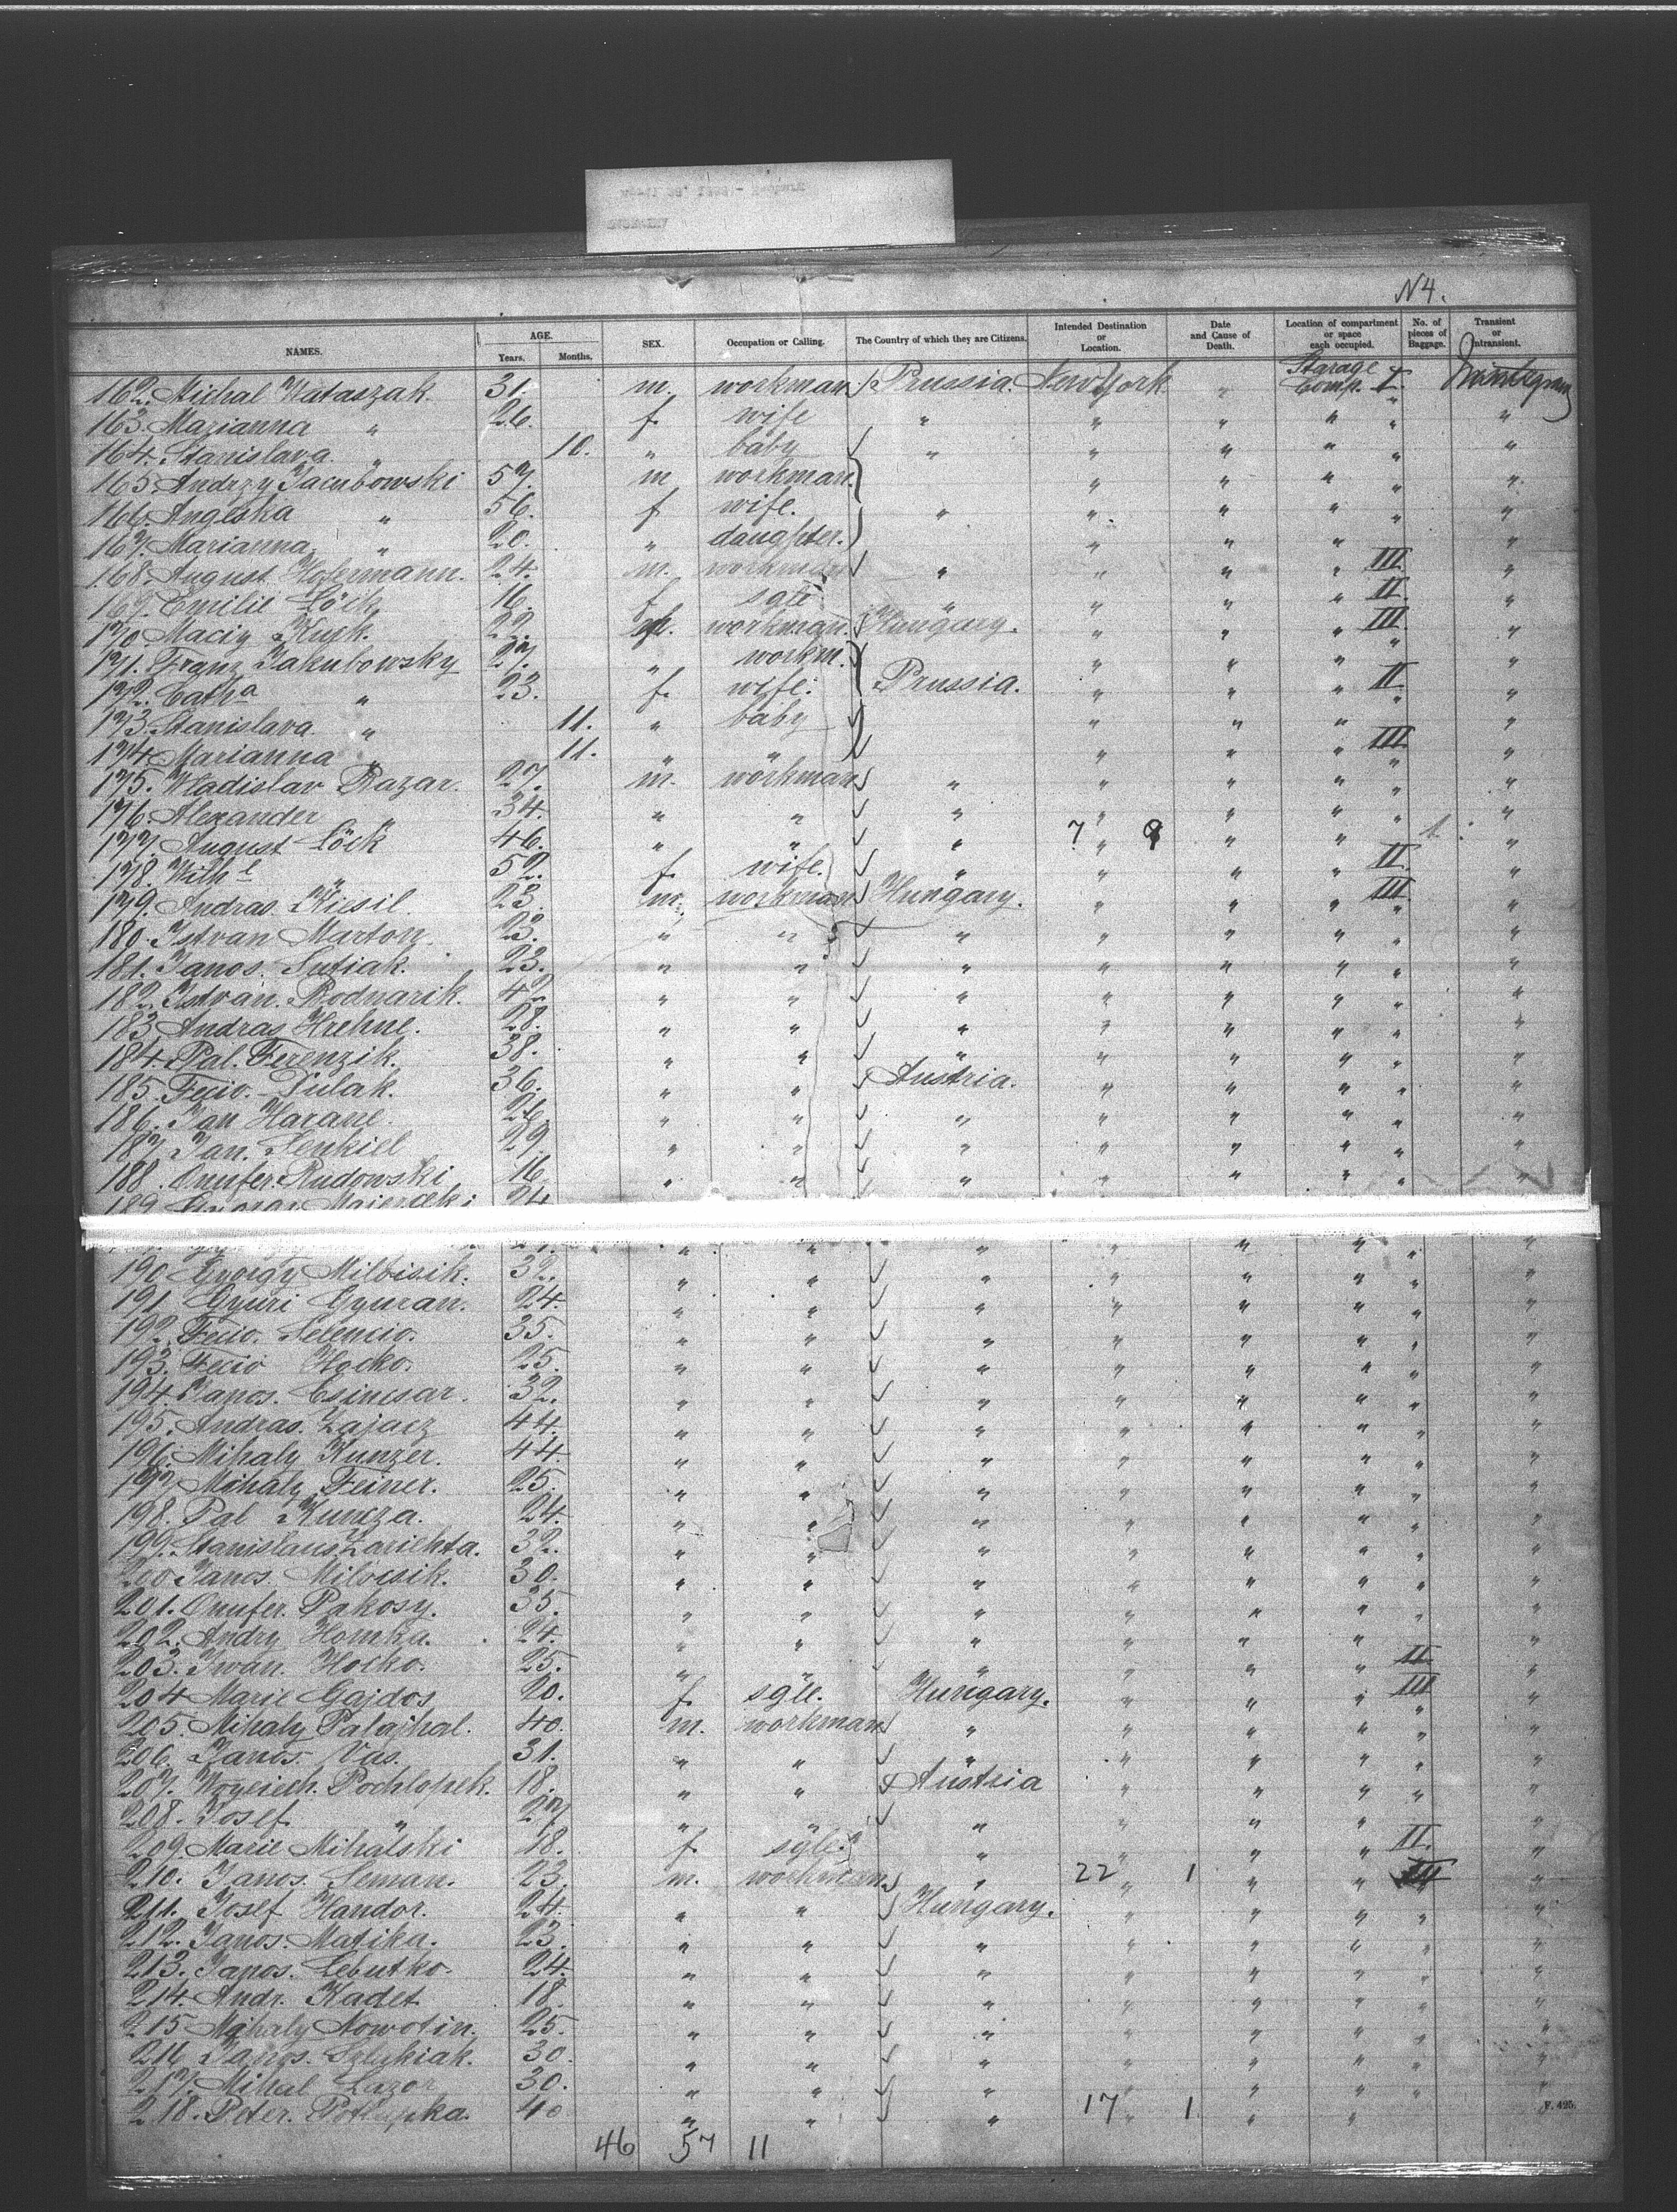 N4.
NAMES. AGE. Years. Months. SEX. Occupation or Calling. The Country of which they are Citizens. Intended Destination or Location. Date and Cause of Death. Location of compartment or space each occupied. No. of pieces of Baggage. Transient or Intransient.
162. Michal Wataszak. 31. m. workman Prussia. New York " Starage Comp. I.
163. Marianna " 26. f. wife " " " " " "
164. Stanislava. " 10. " baby " " " " " "
165. Andrzy Jacubowski 57. m workman. " " " " "
166. Angeska " 56. f wife. " " " " " "
167. Marianna " 20. " daughter. " " " "
168. August Hofermann. 24. m. workman " " " " III. "
169. Emilie Löck 16. f sgle " " " " II. "
170. Maciy Kusk. 22. m. workman. Hungary. " " " III. "
171. Franz Jakubowsky 27. " workm. " " " " "
172. Catha " 23. f. wife. Prussia. " " " II. "
173. Stanislava. " 11. " baby " " " "
174. Marianna " 11. " " " " " III. "
175. Wladislav Razar. 27. m. workman " " " " " "
176. Alexander " 34. " " " " " " " "
177. August Löck 46. " " " 7 " 8 " " "
178. Wilhe " 52. f. wife. " " " " II. "
179. Andras Kiesil. 23. m. workman Hungary. " " " III. "
180. Istvan Marton. 23. " " " " " " " "
181. Janos. Sutiak. 23. " " " " " " " "
182. Istvan. Rodnarik. 42 " " " " " " " "
183 Andras Hrehne. 28. " " " " " " " "
184. Pal. Ferenzik. 38. " " " " " " " "
185. Fecio. Dulak. 36. " " Austria. " " " " "
186. Jan Harane. 26. " " " " " " " "
187. Jan. Senkiel 29 " " " " " " " "
188. Onufer. Rudowski 16 " " " " " " " "
189
190 György Milcisik. 32. " " " " " " " "
191 Gyuri Gyuran. 24. " " " " " " " "
192. Fecio. Selencio. 35. " " " " " " " "
193. Fecio Hocko. 25. " " " " " " " "
194. Janos. Csimsar. 32. " " " " " " " "
195. Andras. Zajacz 44. " " " " " " " "
196. Mihaly Kunzer. 44. " " " " " " " "
197 Mihaly Feiner. 25. " " " " " " " "
198. Pal Kuncza. 24. " " " " " " " "
199. Stanislaus. Zarichta. 32. " " " " " " " "
200 Janos. Milcisik. 30. " " " " " " " "
201. Onufer. Pakosy. 35. " " " " " " " "
202. Andry Homka. 24. " " " " " " "
203. Iwan. Hocko. 25. " " " " " " II "
204 Marie Gajdos 20. f. sgle. Hungary. " " " III "
205. Mihaly Palajhal. 40. m. workman " " " " " "
206. Janos. Vas. 31. " " " " " " " "
207. Woyciech. Pochlopek. 18. " " Austria " " " " "
208. Josef. " 27 " " " " " " " "
209. Marie Mihalski 18. f. sgle. " " " " II. "
210. Janos. Seman. 23. m. workman. " 22 " 1 " " III "
211. Josef Handor. 24. " " Hungary. " " " " "
212. Janos. Matika. 23. " " " " " " "
213. Janos. Lebutko. 24. " " " " " " " "
214. Andr. Kadet 18. " " " " " " " "
215 Mihaly Nowotin. 25. " " " " " " " "
216 Janos. Szlukiak. 30. " " " " " " " "
217. Mihal Lazor 30. " " " " " " " "
218. Peter. 40 " " " 17 " 1 " "
F. 425.
46 57 11